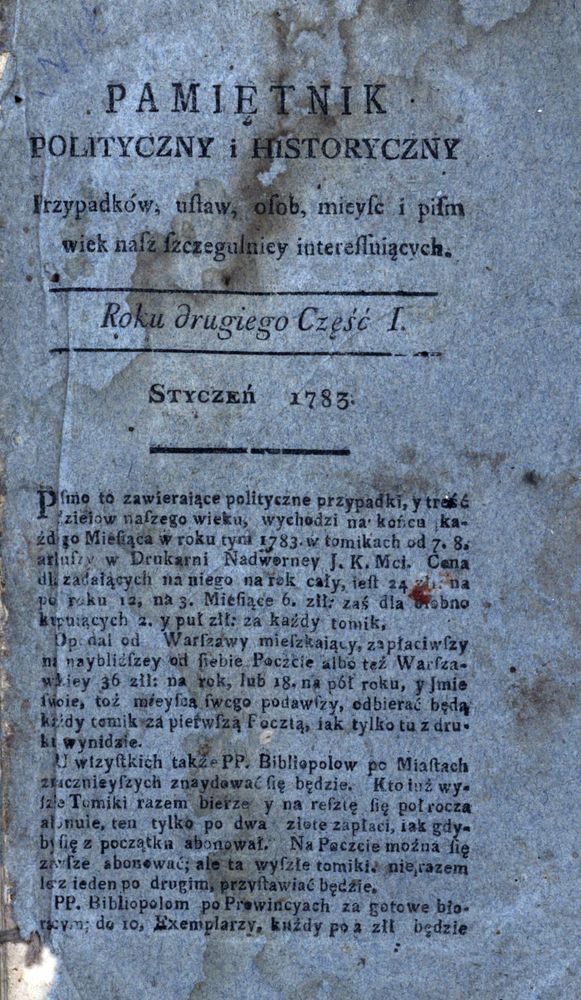 PAMIĘTNIK
POLITYCZNY i HISTORYCZNY
Przypadków, uſtaw, oſob, mieyſc i piſm
wiek naſz ſzczegulniey intereſſuiących.
Roku drugiego Część I.
STYCZEń 1783.
Pſmo to zawieraiące polityczne przypadki, y treść
dzieiow naſzego wieku, wychodzi na końcu ka-
żdego Mieſiąca w roku tym 1783. w tomikach od 7. 8.
arkuſzy w Drukarni Nadworney J. K. Mci. Cena
dla żądaiących na niego na rok cały, ieſt 24 zł: na
pół roku 12, na 3. Mieſiące 6. zlł: zaś dla oſobno
kupuiących 2. y puł złł: za każdy tomik.
Opodal od Warſzawy mieſzkaiący, zapłaciwſzy
na naybliżſzey od ſiebie Poczcie albo też Warſza-
wſkiey 36 złł: na rok, lub 18. na pół roku, y Jmie
ſwoie, toż mieyſca ſwego podawſzy, odbierać będą
każdy tomik za pierwſzą Pocztą, iak tylko tu z dru-
ku wynidzie.
U wſzyſtkich także PP. Bibliopolow po Miaſtach
znacznieyſzych znaydować ſię będzie. Kto iuż wy-
ſzłe Tomiki razem bierze y na reſztę ſię poł rocza
abonuie, ten tylko po dwa złote zapłaci, iak gdy-
by ſię z początku abonował. Na Poczcie można ſię
zawſze abonować; ale ta wyſzłe tomiki. nie razem
lecz ieden po drugim, przyſtawiać będzie.
PP. Bibliopolom po Prowincyach za gotowe bio-
rącym; do 10, Exemplarzy, każdy po 2 złł będzie